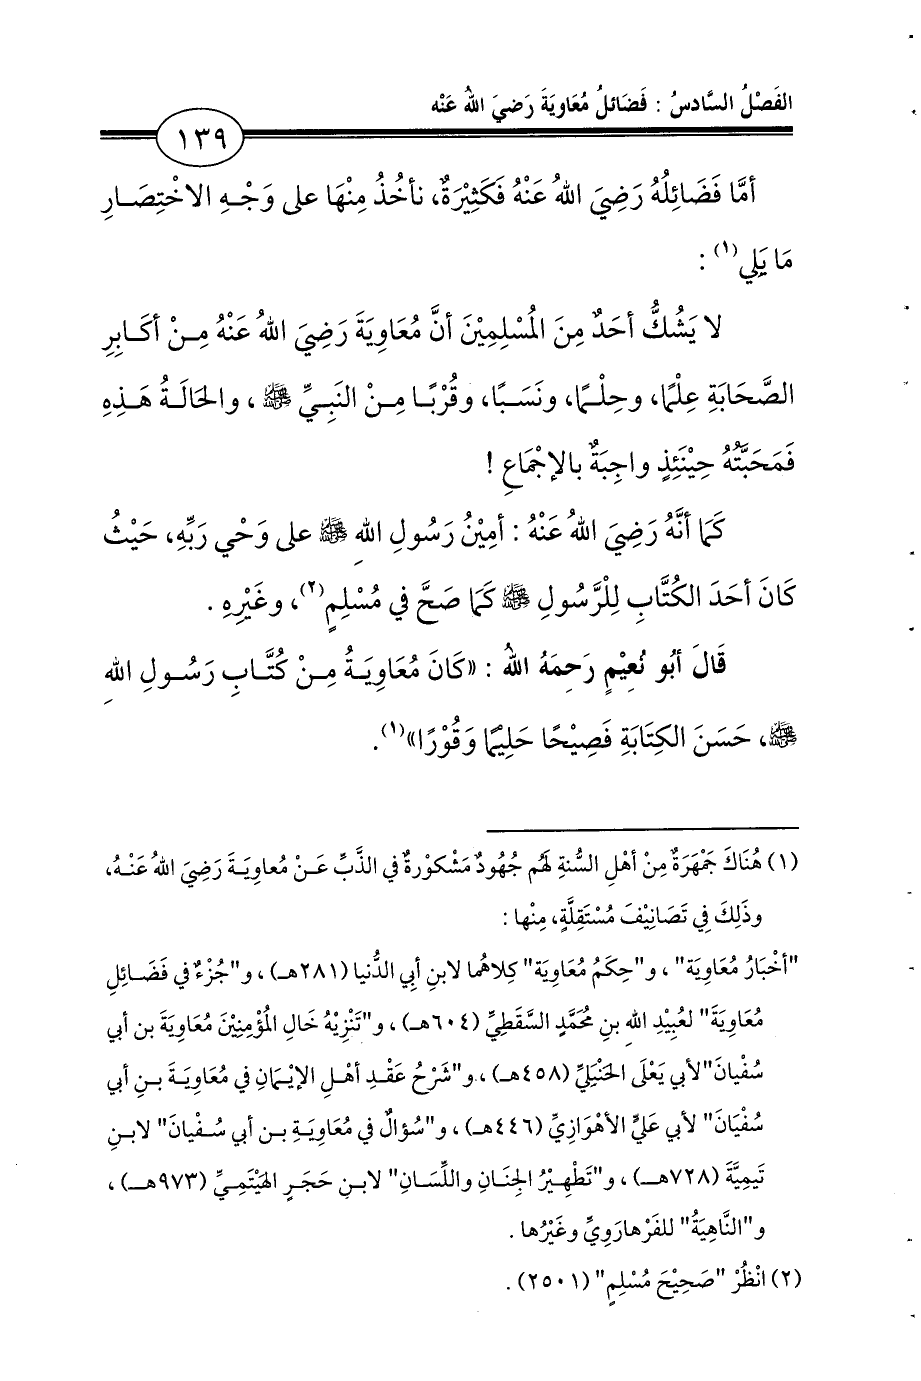 الفَصْلُ السَّادسُ : فَضَائلُ مُعَاويَةَ رَضيَ اللهُ عَنْه
١٣٩
أمَّا فَضَائِلُهُ رَضِيَ اللهُ عَنْهُ فَكَثِيْرَةٌ، نأخُذُ مِنْهَا على وَجْهِ الاخْتِصَارِ
مَا يَلِي(١) :
لا يَشُكُّ أحَدٌ مِنَ المُسْلِمِيْنَ أنَّ مُعَاوِيَةَ رَضِيَ اللهُ عَنْهُ مِنْ أكَابِرِ
الصَّحَابَةِ عِلْمًا، وحِلْمًا، ونَسَبًا، وقُرْبًا مِنْ النَبِيِّ ﷺ ، والحَالَةُ هَذِهِ
فَمَحَبَّتُهُ حِيْنَئِذٍ واجِبَةٌ بالإجْمَاعِ !
كَمَا أنَّهُ رَضِيَ اللهُ عَنْهُ : أمِيْنُ رَسُولِ اللهِ ﷺ على وَحْي رَبِّهِ، حَيْثُ
كَانَ أحَدَ الكُتَّابِ لِلْرَّسُولِ ﷺ كَمَا صَحَّ في مُسْلِمٍ(٢)، وغَيْرِهِ .
قَالَ أبُو نُعِيْمٍ رَحِمَهُ اللهُ : «كَانَ مُعَاوِيَةُ مِنْ كُتَّابِ رَسُولِ اللهِ
ﷺ، حَسَنَ الكِتَابَةِ فَصِيْحًا حَلِيْمًا وَقُوْرًا»(١).
(١) هُنَاكَ جَمْهَرَةٌ مِنْ أهْلِ السُّنةِ لهُم جُهُودٌ مَشْكورْةٌ في الذَّبِّ عَنْ مُعاوِيَةَ رَضِيَ اللهُ عَنْهُ،
وذَلِكَ في تَصَانِيْفَ مُسْتَقِلَّةٍ، مِنْها :
"أخْبَارُ مُعَاوِيَة" ، و"حِكَمُ مُعَاوِيَة" كِلاهُما لابنِ أبي الدُّنيا (٢٨١هـ) ، و"جُزْءٌ في فَضَائلِ
مُعَاوِيَةَ" لعُبيْدِ اللهِ بنِ مُحَمَّدٍ السَّقَطِيِّ (٤٠٦هـ) ، و"تَنْزِيْهُ خَالِ المُؤمِنِيْنَ مُعَاوِيَةَ بن أبي
سُفْيانَ"لأبي يَعْلَى الحَنْبَليِّ (٤٥٨هـ) ، و"شَرْحُ عَقْدِ أهْلِ الإيْمَانِ في مُعَاوِيَةَ بنِ أبي
سُفْيَانَ" لأبي عَليٍّ الأهْوَازِيِّ (٤٤٦هـ) ، و"سُؤالٌ في مُعَاوِيَةِ بن أبي سُفْيانَ" لابنِ
تَيمِيَّةَ (٧٢٨هـ) ، و"تَطْهِيْرُ الجَنَانِ واللِّسَانِ" لابنِ حَجَرٍ الهَيْتَمِيِّ (٩٧٣هـ) ،
و"النَّاهِيَةُ" للفَرْهارَوِيِّ وغَيْرُها .
(٢) انْظُرْ "صَحِيْحَ مُسْلِمٍ" (٢٥٠١) .